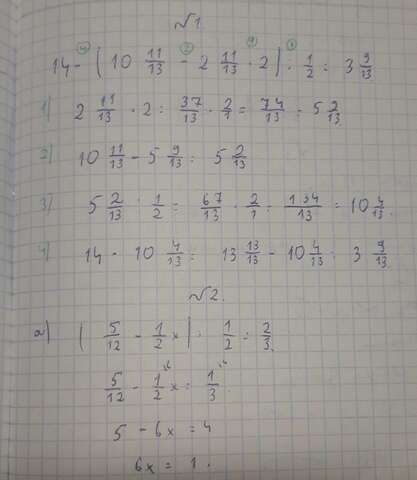 №1.
④ ② ① ③
14 - ( 10 11/13 - 2 11/13 · 2 ) : 1/2 = 3 9/13
1) 2 11/13 · 2 = 37/13 · 2/1 = 74/13 = 5 9/13
2) 10 11/13 - 5 9/13 = 5 2/13
3) 5 2/13 : 1/2 = 67/13 · 2/1 = 134/13 = 10 4/13.
4) 14 - 10 4/13 = 13 13/13 - 10 4/13 = 3 9/13.
№2.
а) ( 5/12 - 1/2 x ) : 1/2 = 2/3.
5/12 - 1/2 x = 1/3.
5 - 6x = 4
6x = 1.